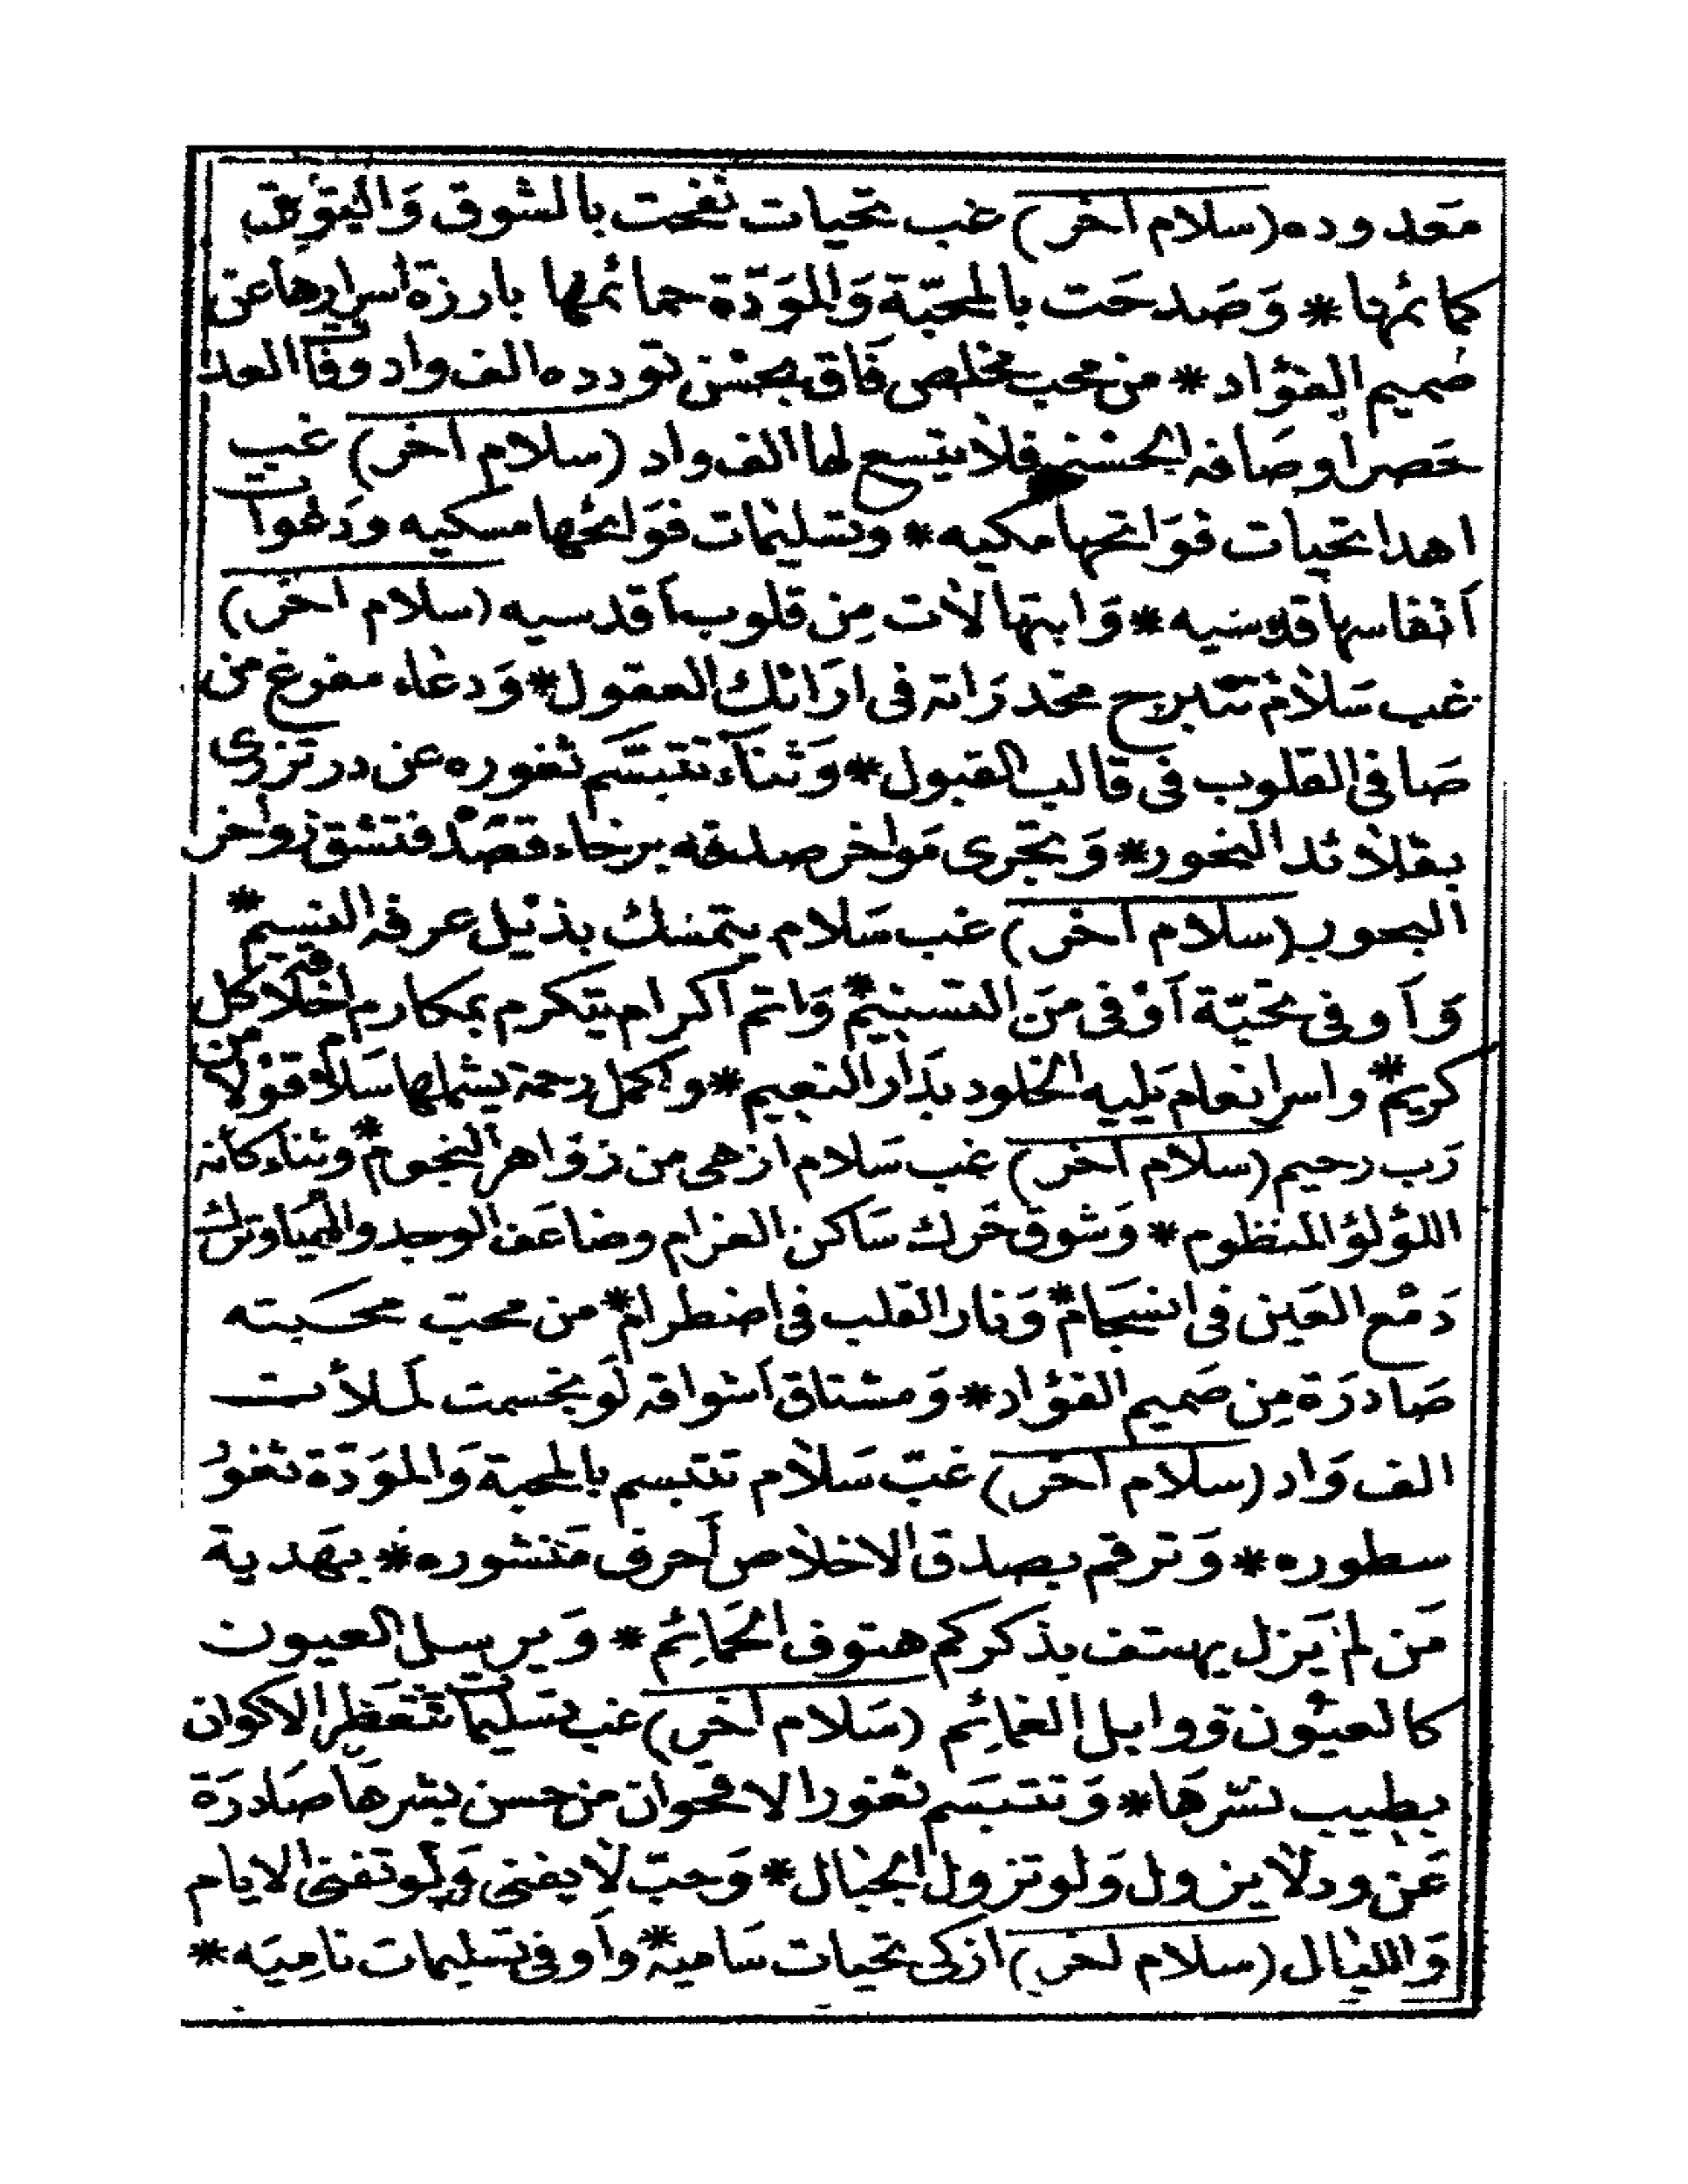 معدوده (سلام اخر) غب تحيات نفحت بالشوق وَالتوق
كمائمها * وَصَدحَت بالمحبّة وَالموَدّة حمائمها بارزة أسرارها عن
صميم الفؤاد * من محب مخلص فَاق بحسْن تودده الف واد وفَات العد
حَصر اوصَافه الحسْنى فلا يتسع لها الف واد (سلام اخر) غب
اهدا تحيات فوَاتحها مكيه * وتسليمات فوَائحها مسكيه ودَعْوات
أنفاسها قدسيه * وَابتهالات مِن قلوب اقدسيه (سلام اخر)
غب سَلام تتبرج مخدرَاته فى ارَائك العقول * وَدعَاء مفرغ من
صَافى القلوب فى قالب القبول * وَثنآء تتبسَّم ثغوره عن درر تزرى
بقلائد النحور * وَتجرى مَواخر صدقه برخاء قصْد فتشق زواخر
البحور (سلام اخر) غب سَلام يتمسْك بذيْل عرفه النسيم *
وَأوفى تحيّة أوْفى مَن التسنيم * وَاتم اكرام يتكرم بمكارم اخلاقه كل
كريم * واسر انعام يَليه الخلود بدَار النعيم * واكمل رحمة يشملها سَلام قوْلا من
رَب رحيم (سلام اخر) غب سَلام ازهى من زوَاهر النجوم * وثناء كأنه
اللؤلؤ المنظوم * وَشوق حَرك سَاكن الغرام وضاعَف الوجد والهيَام وترك
دَمْع العَين فى انسجَام * وَنار القلب فى اضطرام * من محبّ محَبته
صَادرَة مِن صَميم الفؤاد * وَمشتاق أشواقه لَو تجسمت لَملأت
الف وَاد (سلام اخر) غبّ سَلام تتبسم بالمحبة وَالموَدّة ثغور
سطوره * وَترقم بصدق الاخلاص أحرف مَنشوره * يهَدية
مَن لمْ يَزل يهتف بذكركم هتوف الحمَائِم * وَيرسل العيون
كالعيُون ووابل الغمائِم (سَلام اخر) غب تسليمات تتعَطر الاكوان
بطيب نشرهَا * وَتتبسَم ثغور الاقحوان من حسن بشرهَا صَادرَة
عَن ود لا يزول وَلو تزول الجبال * وَحبّ لا يفنى وَلَو تفنى الايام
وَالليال (سلام اخر) ازكى تحيات سَاميه * وأوفى تسليمات نامِيَه *